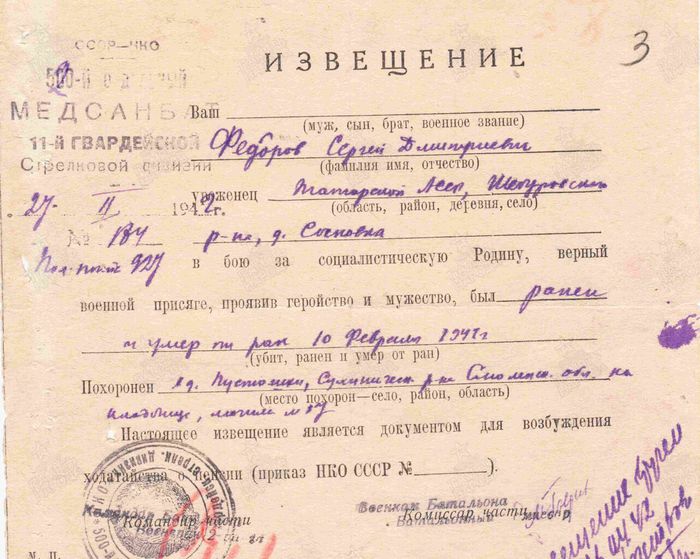 СССР—НКО
3
ИЗВЕЩЕНИЕ
МЕДСАНБАТ
11-й ГВАРДЕЙСКОЙ
Стрелковой дивизии
Ваш
(муж, сын, брат, военное звание)
Федоров Сергей Дмитриевич
(фамилия имя, отчество)
27 II 1942г.
уроженец Татарской АССР,
(область, район, деревня, село)
№ 184 р-на, д. Сосновка
927 в бою за социалистическую Родину, верный
военной присяге, проявив геройство и мужество, был ранен
и умер от ран 10 февраля 1942 г
(убит, ранен и умер от ран)
Похоронен в д. Сухиническ. р-на Смоленск. обл. на
(место похорон—село, район, область)
кладбище, могила №
Настоящее извещение является документом для возбуждения
ходатайства о пенсии (приказ НКО СССР № ).
Командир части
Военком Батальона
Комиссар части
Батальонный
М. П.